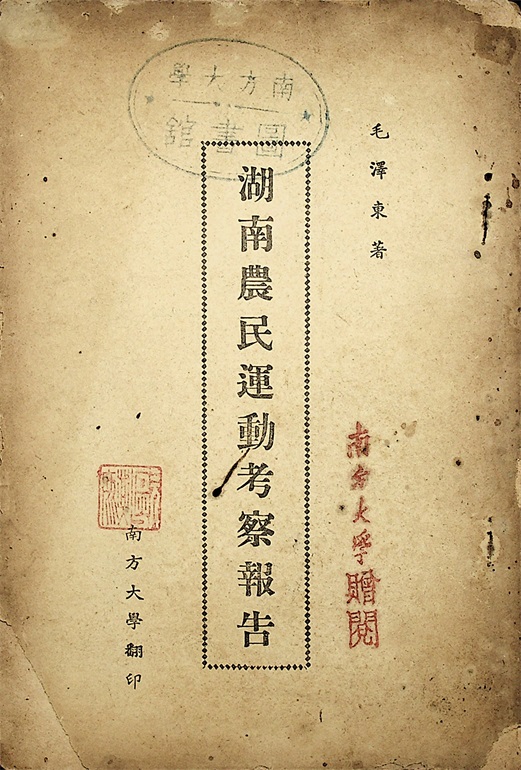 南方大學
圖書館
毛澤東著
湖南農民運動考察報告
南方大学
贈閱
南方大學翻印